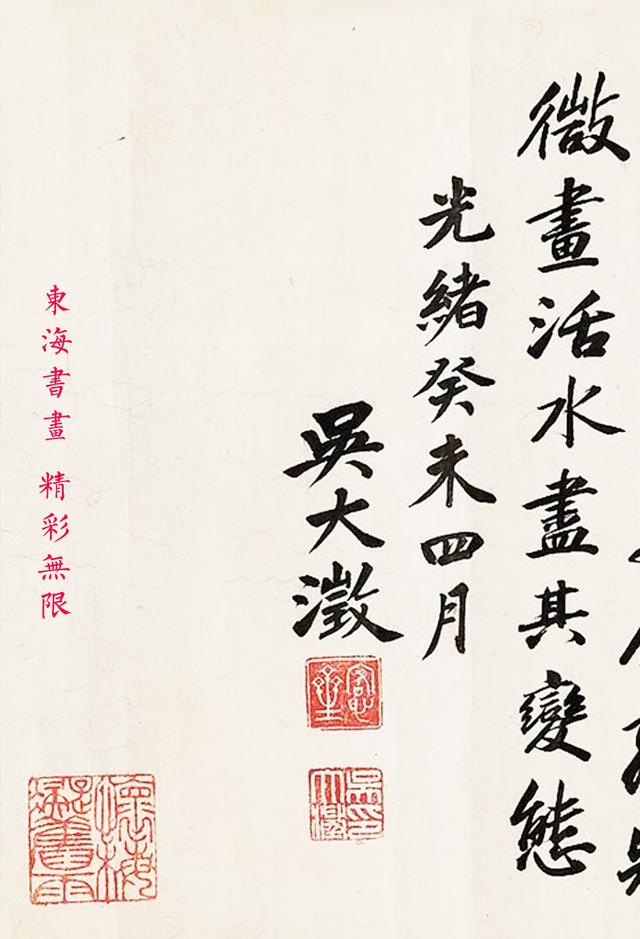 微畫活水盡其變態
光緒癸未四月
吳大澂
吳大澂印
東海書畫 精彩無限